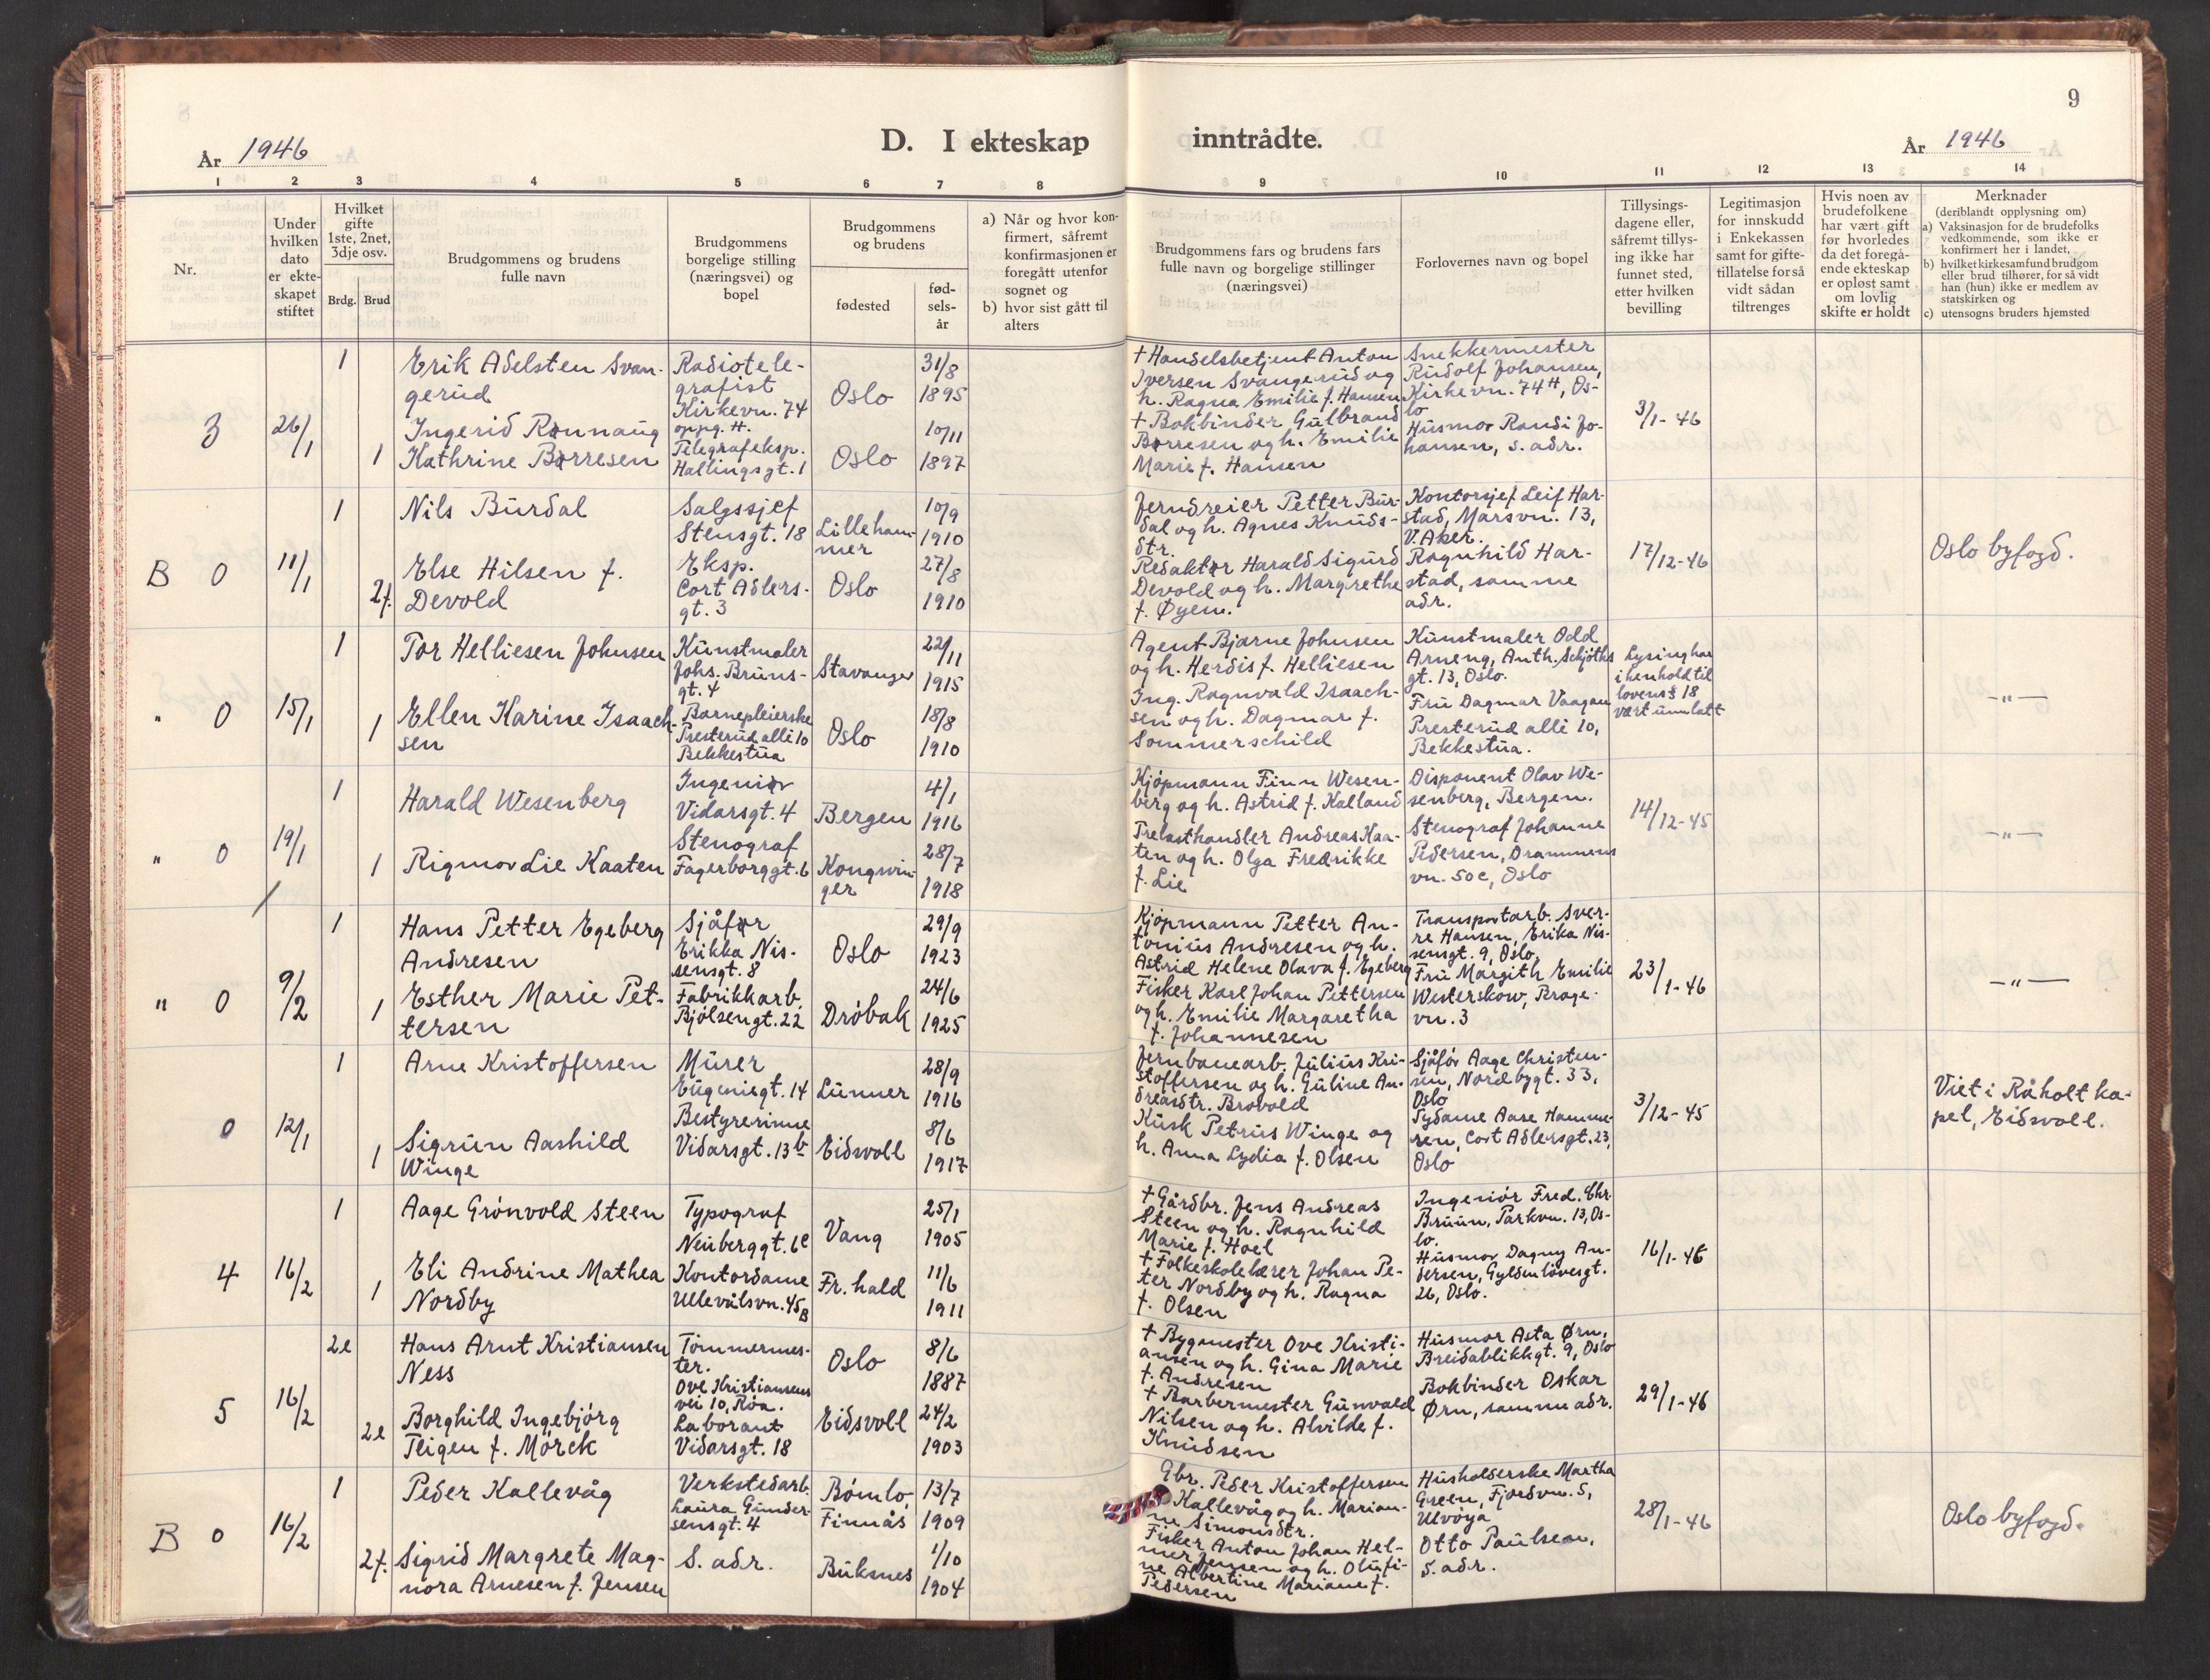 9
År 1946
D. I ekteskap inntrådte.
År 1946
1 2 3 4 5 6 7 8 9 10 11 12 13 14
Nr.
Under
hvilken
dato
er ekte-
skapet
stiftet
Hvilket
gifte
1ste, 2net,
3dje osv.
Brdg. Brud
Brudgommens og brudens
fulle navn
Brudgommens
borgelige stilling
(næringsvei) og
bopel
Brudgommens
og brudens
fødested
fød-
sels-
år
a) Når og hvor kon-
firmert, såfremt
konfirmasjonen er
foregått utenfor
sognet og
b) hvor sist gått til
alters
Brudgommens fars og brudens fars
fulle navn og borgelige stillinger
(næringsvei)
Forlovernes navn og bopel
Tillysings-
dagene eller,
såfremt tillys-
ing ikke har
funnet sted,
etter hvilken
bevilling
Legitimasjon
for innskudd
i Enkekassen
samt for gifte-
tillatelse for så
vidt sådan
tiltrenges
Hvis noen av
brudefolkene
har vært gift
før hvorledes
da det foregå-
ende ekteskap
er opløst samt
om lovlig
skifte er holdt
Merknader
(deriblandt opplysning om)
a) Vaksinasjon for de brudefolks
vedkommende, som ikke er
konfirmert her i landet,
b) hvilket kirkesamfund brudgom
eller brud tilhører, for så vidt
han (hun) ikke er medlem av
statskirken og
c) utensogns bruders hjemsted
3
26/1
1
1
Erik Adelsten Svan-
gerud
Ingerid Rønnaug
Kathrine Børresen
Radiotele-
grafist
Kirkevn. 74
oppg. H.
Telegrafeksp.
Hallingsgt. 1
Oslo
Oslo
31/8
1895
10/11
1897
+ Handelsbetjent Anton
Iversen Svangerud og
h. Ragna Emilie f. Hansen
+ Bokbinder Gulbrand
Børresen og h. Emilie
Marie f. Hansen
Snekkermester
Rudolf Johansen,
Kirkevn. 74 H, Os-
lo
Husmor Randi Jo-
hansen, s. adr.
3/1-46
B 0
11/1
1
2f.
Nils Burdal
Else Hilsen f.
Devold
Salgssjef
Stensgt. 18
Eksp.
Cort Adlers-
gt. 3
Lilleham-
mer
Oslo
10/9
1910
27/8
1910
Jerndreier Petter Bur-
dal og h. Agnes Knuds-
dtr.
Redaktør Harald Sigurd
Devold og h. Margrethe
f. Øyen.
Kontorsjef Leif Har-
stad, Marsvn. 13,
V. Aker.
Ragnhild Har-
stad, samme
adr.
17/12-46
Oslo byfogd.
" 0
15/1
1
1
Tor Helliesen Johnsen
Ellen Karine Isaach-
sen
Kunstmaler
Johs. Bruns-
gt. 4
Barnepleierske
Presterud alle 10
Bekkestua
Stavanger
Oslo
22/11
1915
18/8
1910
Agent Bjarne Johnsen
og h. Herdis f. Helliesen
Ing. Ragnvald Isaach-
sen og h. Dagmar f.
Sommerschild
Kunstmaler Odd
Arneng, Anth. Schjøths
gt. 13, Oslo.
Fru Dagmar Vaagan
Presterud alle 10,
Bekkestua.
Lysing har
i henhold til
lovens § 18
vært unnlatt
— " —
" 0
19/1
1
1
Harald Wesenberg
Rigmor Lie Kaaten
Ingeniør
Vidarsgt. 4
Stenograf
Fagerborggt. 6
Bergen
Kongsvin-
ger
4/1
1916
28/7
1918
Kjøpmann Finn Wesen-
berg og h. Astrid f. Kalland
Trelasthandler Andreas Kaa-
ten og h. Olga Fredrikke
f. Lie
Disponent Olav We-
senberg, Bergen.
Stenograf Johanne
Pedersen, Drammens
vn. 50c, Oslo
14/12-45
— " —
" 0
9/2
1
1
Hans Petter Egeberg
Andresen
Esther Marie Pet-
tersen
Sjåfør
Erikka Nis-
sensgt. 8
Fabrikkarb.
Bjølsengt. 22
Oslo
Drøbak
29/9
1923
24/6
1925
Kjøpmann Petter An-
tonius Andresen og h.
Astrid Helene Olava f. Egeberg
Fisker Karl Johan Pettersen
og h. Emilie Margaretha
f. Johannesen
Transportarb. Sver-
re Hansen, Erika Nis-
sensgt. 9, Oslo,
Fru Margith Emilie
Westerskow, Brage-
vn. 3
23/1-46
— " —
0
12/1
1
1
Arne Kristoffersen
Sigrun Aashild
Winge
Murer
Eugenisgt. 14
Bestyrerinne
Vidarsgt. 13b
Lunner
Eidsvoll
28/9
1916
8/6
1917
Jernbanearb. Julius Kri-
stoffersen og h. Guline An-
dreasdtr. Brovold
Kusk Petrus Winge og
h. Anna Lydia f. Olsen
Sjåfør Aage Christen-
sen, Nordbygt. 33,
Oslo
Sydame Aase Hamme-
ren, Cort Adlersgt. 23,
Oslo
3/12-45
Viet i Råholt ka-
pel, Eidsvoll.
4
16/2
1
1
Aage Grønvold Steen
Eli Andrine Mathea
Nordby
Typograf
Neuberggt. 6c
Kontordame
Ullevålsvn. 45B
Vang
Fr. hald
25/1
1905
11/6
1911
+ Gårdbr. Jens Andreas
Steen og h. Ragnhild
Marie f. Hoel
+ Folkeskolelærer Johan Pe-
ter Nordby og h. Ragna
f. Olsen
Ingeniør Fred. Chr.
Bruun, Parkvn. 13, Os-
lo.
Husmor Dagny An-
dersen, Gyldenløvesgt.
26, Oslo.
16/1-46
5
16/2
2e
2e
Hans Arnt Kristiansen
Ness
Borghild Ingebjørg
Teigen f. Mørck
Tømmermes-
ter.
Ove Kristiansens
vei 10, Røa.
Laborant
Vidarsgt. 18
Oslo
Eidsvoll
8/6
1887
24/2
1903
+ Byggmester Ove Kristi-
ansen og h. Gina Marie
f. Andresen
+ Barbermester Gunvald
Nilsen og h. Alvilde f.
Knudsen
Husmor Asta Ørn,
Breidablikkgt. 9, Oslo
Bokbinder Oskar
Ørn, samme adr.
29/1-46
B 0
16/2
1
2f.
Peder Kallevåg
Sigrid Margrete Mag-
nora Arnesen f. Jensen
Verkstedarb.
Laura Gunder-
sensgt. 4
S. adr.
Bømlo,
Finnås
Buksnes
13/7
1909
1/10
1904
Gbr. Peder Kristoffersen
Kallevåg og h. Marian-
ne Simonsdtr.
Fisker Anton Johan Hel-
mer Jensen og h. Olufi-
ne Albertine Mariane f.
Pedersen
Husholderske Martha
Green, Fjordvn. 5,
Ulvøya
Otto Paulsen,
S. adr.
28/1-46
Oslo byfogd.